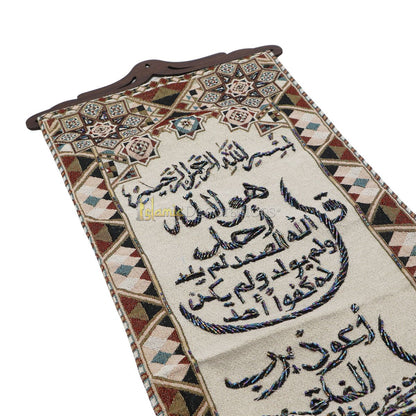 بسم الله الرحمن الرحيم
قل هو الله
أحد
الله الصمد لم يلد
ولم يولد ولم يكن
له كفوا أحد
قل أعوذ برب
الفلق